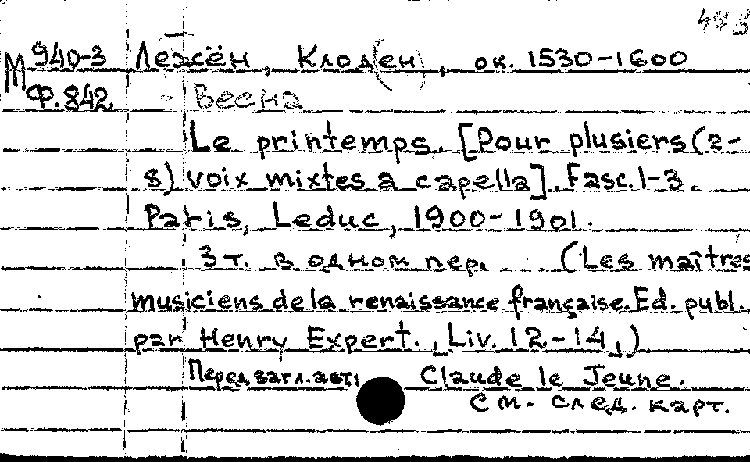 М 940-3 Лежён, Клод(ен), ок. 1530-1600
Ф.842 - Весна
Le printemps. [Pour plusiers (2-
8) voix mixtes a capella]. Fasc. 1-3.
Paris, Leduc, 1900-1901.
3 т. в одном пер. (Les maîtres
musiciens de la renaissance française. Ed. publ.
par Henry Expert., Liv. 12-14,)
Перед загл. авт: Claude le Jeune.
См. след. карт.